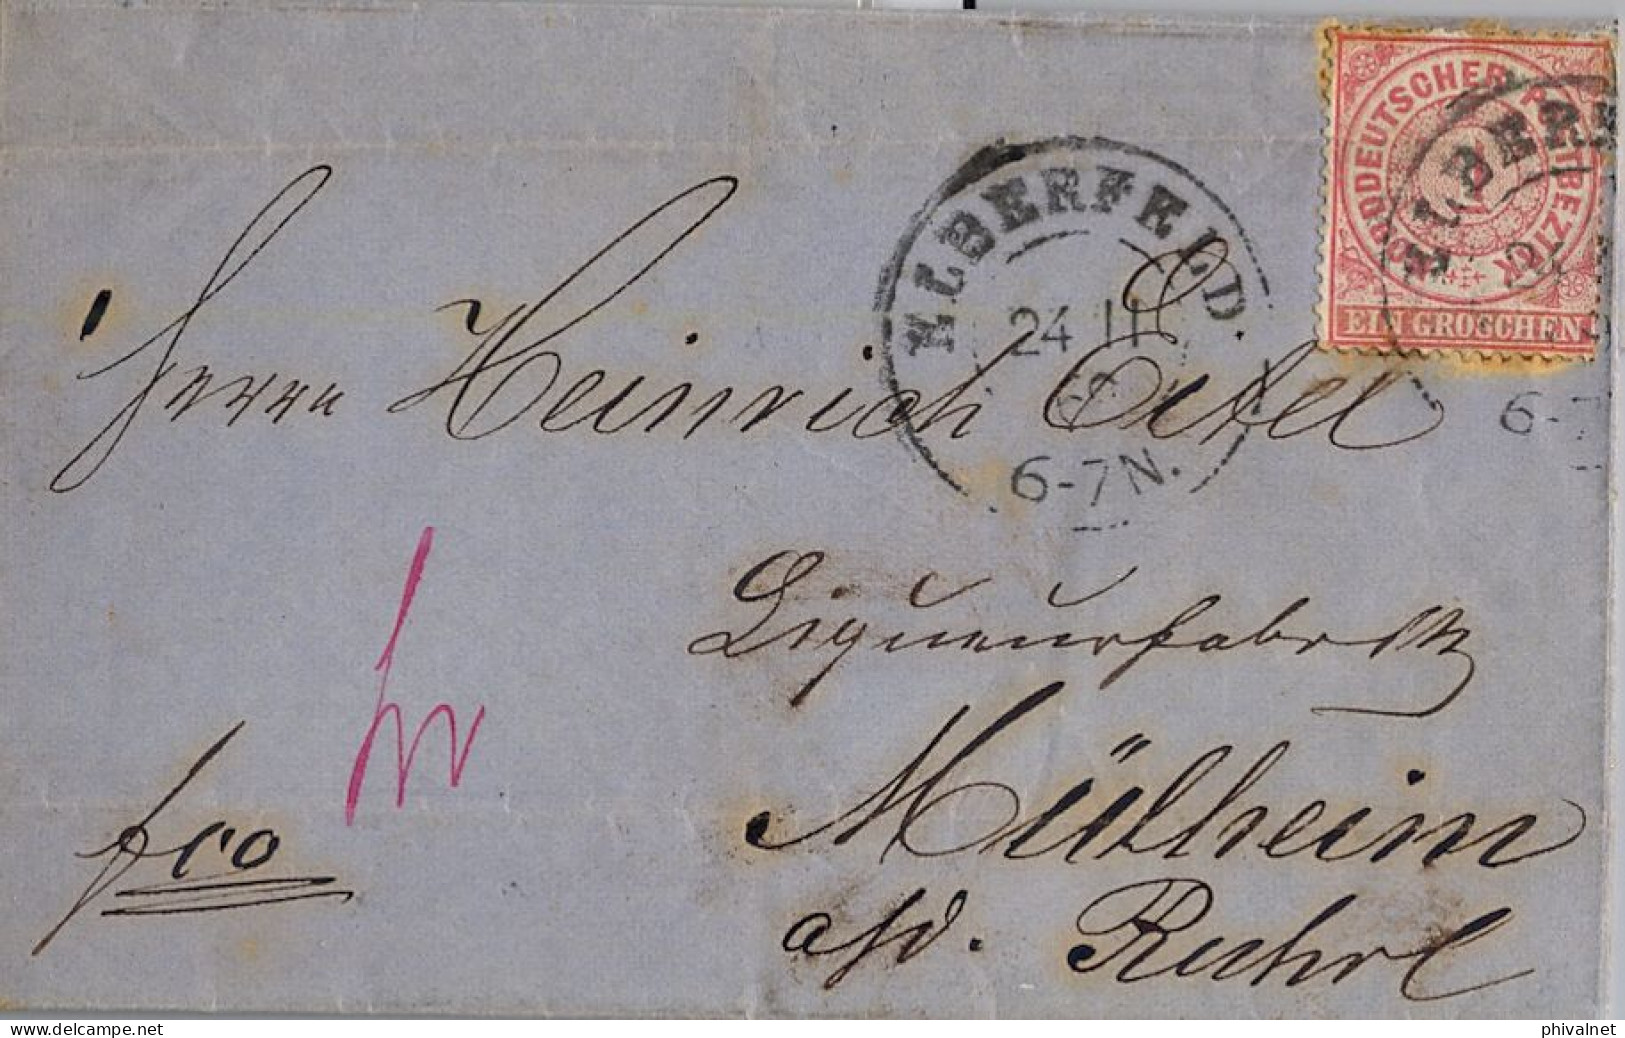 NORDDEUTSCHER POSTBEZIRK
EIN GROSCHEN
ELBERFELD
24 11
6-7N.
ELBERF
6-7
Herrn Heinrich
Liqueurfabrik
Mülheim
a/d. Ruhr
fco
© delcampe.net
phivalnet